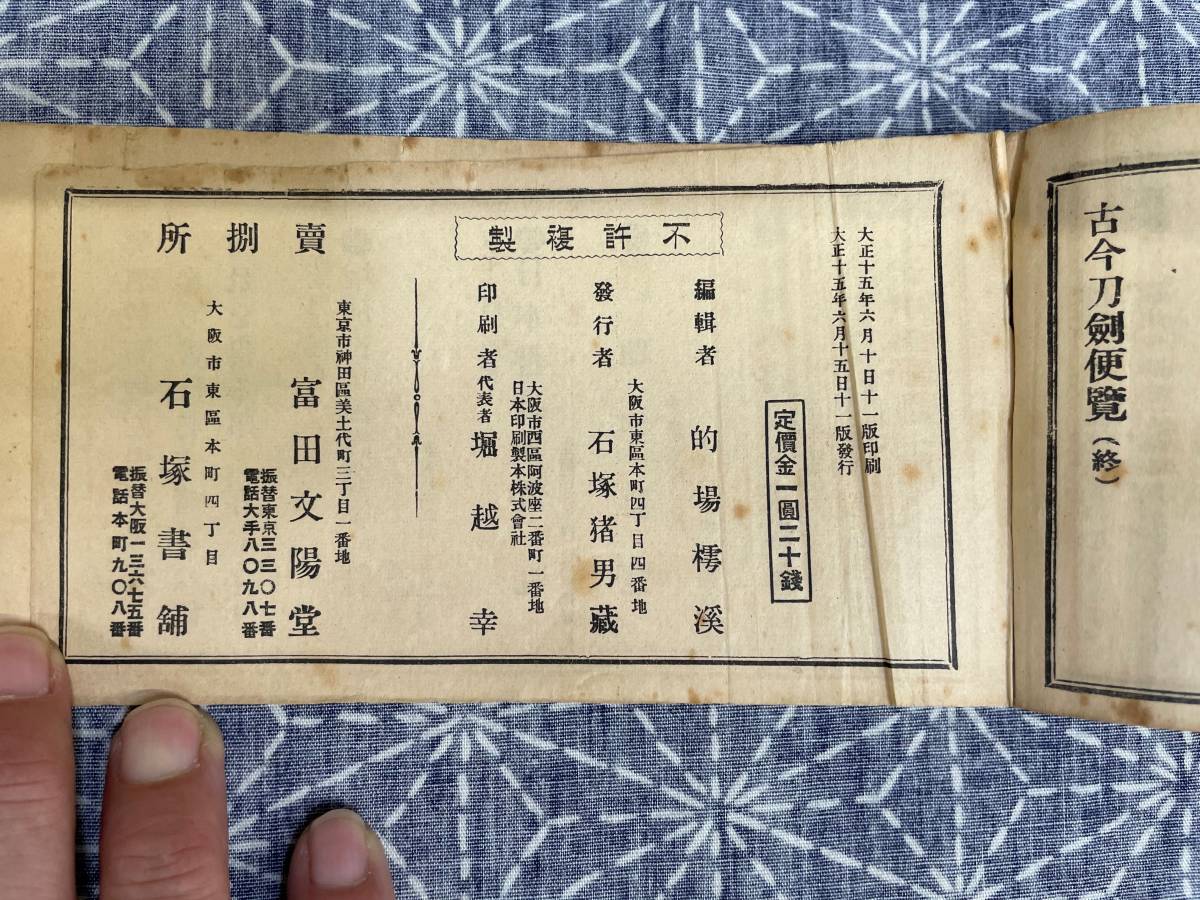 古今刀劍便覽(終)
大正十五年六月十日十一版印刷
大正十五年六月十五日十一版發行
定價金一圓二十錢
不許複製
編輯者 的場樗溪
大阪市東區本町四丁目四番地
發行者 石塚猪男藏
大阪市西區阿波座二番町一番地
日本印刷製本株式會社
印刷者代表者 堀越幸
賣捌所
東京市神田區美土代町三丁目一番地
富田文陽堂
振替東京三三〇七番
電話大手八〇九八番
大阪市東區本町四丁目
石塚書舖
振替大阪一三六七五番
電話本町九〇八番